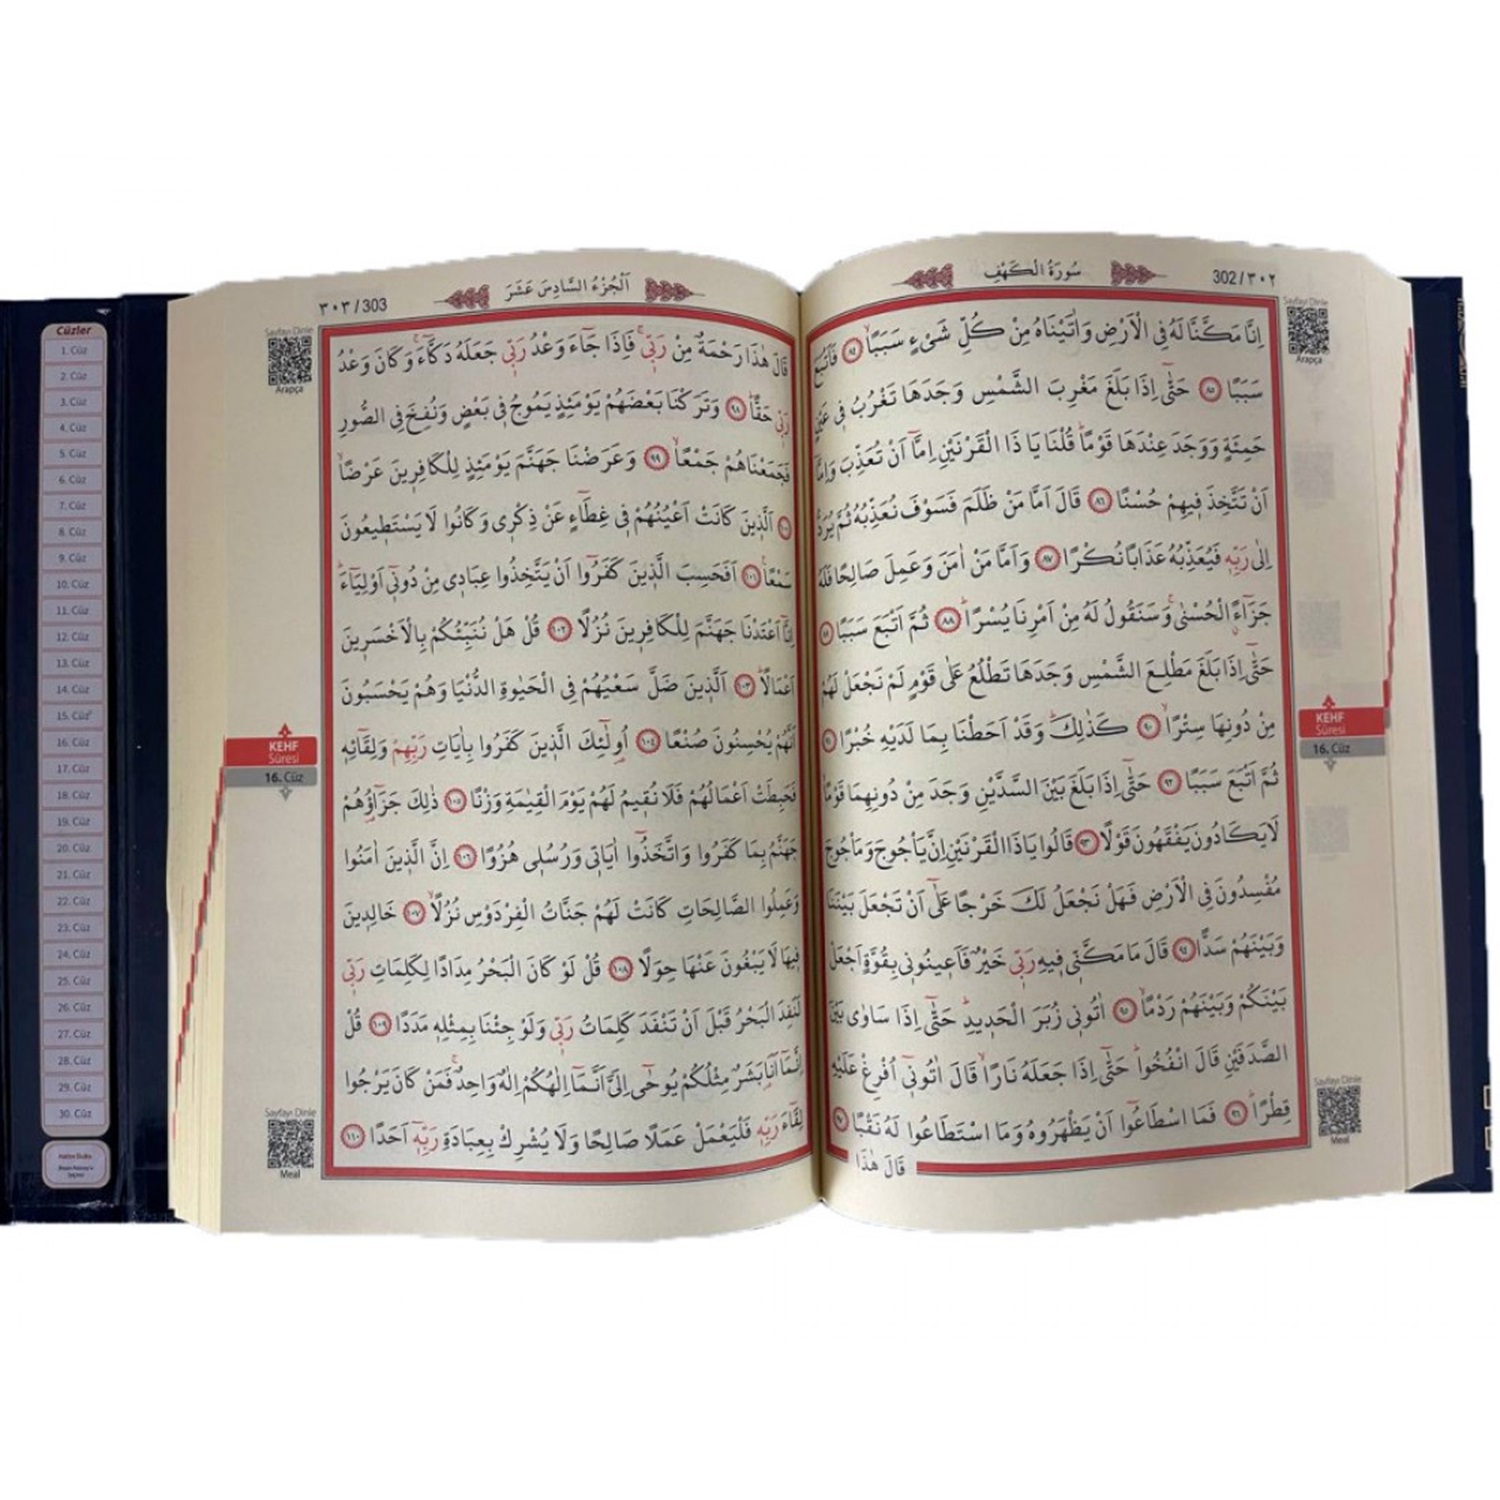 سُورَةُ الْكَهْفِ
302/٣٠٢
Sayfayı Dinle
Arapça
اِنَّا مَكَّنَّا لَهُ فِي الْاَرْضِ وَاٰتَيْنَاهُ مِنْ كُلِّ شَيْءٍ سَبَبًاۙ ٨٤ فَاَتْبَعَ
سَبَبًا ٨٥ حَتّٰٓى اِذَا بَلَغَ مَغْرِبَ الشَّمْسِ وَجَدَهَا تَغْرُبُ فِي عَيْنٍ
حَمِئَةٍ وَوَجَدَ عِنْدَهَا قَوْمًاۜ قُلْنَا يَا ذَا الْقَرْنَيْنِ اِمَّٓا اَنْ تُعَذِّبَ وَاِمَّٓا
اَنْ تَتَّخِذَ فِيهِمْ حُسْنًا ٨٦ قَالَ اَمَّا مَنْ ظَلَمَ فَسَوْفَ نُعَذِّبُهُ ثُمَّ يُرَدُّ
اِلٰى رَبِّهِ فَيُعَذِّبُهُ عَذَابًا نُكْرًا ٨٧ وَاَمَّا مَنْ اٰمَنَ وَعَمِلَ صَالِحًا فَلَهُ
جَزَٓاءًۨ الْحُسْنٰىۚ وَسَنَقُولُ لَهُ مِنْ اَمْرِنَا يُسْرًاۜ ٨٨ ثُمَّ اَتْبَعَ سَبَبًا ٨٩
حَتّٰٓى اِذَا بَلَغَ مَطْلِعَ الشَّمْسِ وَجَدَهَا تَطْلُعُ عَلٰى قَوْمٍ لَمْ نَجْعَلْ لَهُمْ
مِنْ دُونِهَا سِتْرًاۙ ٩٠ كَذٰلِكَۜ وَقَدْ اَحَطْنَا بِمَا لَدَيْهِ خُبْرًا ٩١
ثُمَّ اَتْبَعَ سَبَبًا ٩٢ حَتّٰٓى اِذَا بَلَغَ بَيْنَ السَّدَّيْنِ وَجَدَ مِنْ دُونِهِمَا قَوْمًاۙ
لَا يَكَادُونَ يَفْقَهُونَ قَوْلًا ٩٣ قَالُوا يَا ذَا الْقَرْنَيْنِ اِنَّ يَأْجُوجَ وَمَأْجُوجَ
مُفْسِدُونَ فِي الْاَرْضِ فَهَلْ نَجْعَلُ لَكَ خَرْجًا عَلٰٓى اَنْ تَجْعَلَ بَيْنَنَا
وَبَيْنَهُمْ سَدًّا ٩٤ قَالَ مَا مَكَّنّٖي فِيهِ رَبّٖي خَيْرٌ فَاَعِينُونٖي بِقُوَّةٍ اَجْعَلْ
بَيْنَكُمْ وَبَيْنَهُمْ رَدْمًاۙ ٩٥ اٰتُونٖي زُبَرَ الْحَدِيدِۜ حَتّٰٓى اِذَا سَاوٰى بَيْنَ
الصَّدَفَيْنِ قَالَ انْفُخُواۜ حَتّٰٓى اِذَا جَعَلَهُ نَارًاۙ قَالَ اٰتُونٖٓي اُفْرِغْ عَلَيْهِ
قِطْرًاۜ ٩٦ فَمَا اسْطَاعُٓوا اَنْ يَظْهَرُوهُ وَمَا اسْتَطَاعُوا لَهُ نَقْبًا ٩٧
قَالَ هٰذَا
KEHF
Sûresi
16. Cüz
Sayfayı Dinle
Meal
اَلْجُزْءُ السَّادِسَ عَشَرَ
٣٠٣/303
Sayfayı Dinle
Arapça
قَالَ هٰذَا رَحْمَةٌ مِنْ رَبّٖيۚ فَاِذَا جَٓاءَ وَعْدُ رَبّٖي جَعَلَهُ دَكَّٓاءَۚ وَكَانَ وَعْدُ
رَبّٖي حَقًّاۜ ٩٨ وَتَرَكْنَا بَعْضَهُمْ يَوْمَئِذٍ يَمُوجُ فٖي بَعْضٍ وَنُفِخَ فِي الصُّورِ
فَجَمَعْنَاهُمْ جَمْعًاۙ ٩٩ وَعَرَضْنَا جَهَنَّمَ يَوْمَئِذٍ لِلْكَافِرٖينَ عَرْضًاۙ
١٠٠ اَلَّذٖينَ كَانَتْ اَعْيُنُهُمْ فٖي غِطَٓاءٍ عَنْ ذِكْرٖي وَكَانُوا لَا يَسْتَطٖيعُونَ
سَمْعًاۚ ١٠١ اَفَحَسِبَ الَّذٖينَ كَفَرُٓوا اَنْ يَتَّخِذُوا عِبَادٖي مِنْ دُونٖٓي اَوْلِيَٓاءَۜ
اِنَّٓا اَعْتَدْنَا جَهَنَّمَ لِلْكَافِرٖينَ نُزُلًا ١٠٢ قُلْ هَلْ نُنَبِّئُكُمْ بِالْاَخْسَرٖينَ
اَعْمَالًاۜ ١٠٣ اَلَّذٖينَ ضَلَّ سَعْيُهُمْ فِي الْحَيٰوةِ الدُّنْيَا وَهُمْ يَحْسَبُونَ
اَنَّهُمْ يُحْسِنُونَ صُنْعًا ١٠٤ اُو۬لٰٓئِكَ الَّذٖينَ كَفَرُوا بِاٰيَاتِ رَبِّهِمْ وَلِقَٓائِهٖ
فَحَبِطَتْ اَعْمَالُهُمْ فَلَا نُقٖيمُ لَهُمْ يَوْمَ الْقِيٰمَةِ وَزْنًا ١٠٥ ذٰلِكَ جَزَٓاؤُ۬هُمْ
جَهَنَّمُ بِمَا كَفَرُوا وَاتَّخَذُٓوا اٰيَاتٖي وَرُسُلٖي هُزُوًا ١٠٦ اِنَّ الَّذٖينَ اٰمَنُوا
وَعَمِلُوا الصَّالِحَاتِ كَانَتْ لَهُمْ جَنَّاتُ الْفِرْدَوْسِ نُزُلًاۙ ١٠٧ خَالِدٖينَ
فٖيهَا لَا يَبْغُونَ عَنْهَا حِوَلًا ١٠٨ قُلْ لَوْ كَانَ الْبَحْرُ مِدَادًا لِكَلِمَاتِ رَبّٖي
لَنَفِدَ الْبَحْرُ قَبْلَ اَنْ تَنْفَدَ كَلِمَاتُ رَبّٖي وَلَوْ جِئْنَا بِمِثْلِهٖ مَدَدًا ١٠٩ قُلْ
اِنَّمَٓا اَنَا۬ بَشَرٌ مِثْلُكُمْ يُوحٰٓى اِلَيَّ اَنَّمَٓا اِلٰهُكُمْ اِلٰهٌ وَاحِدٌۚ فَمَنْ كَانَ يَرْجُوا
لِقَٓاءَ رَبِّهٖ فَلْيَعْمَلْ عَمَلًا صَالِحًا وَلَا يُشْرِكْ بِعِبَادَةِ رَبِّهٖٓ اَحَدًا ١١٠
KEHF
Sûresi
16. Cüz
Sayfayı Dinle
Meal
Cüzler
1. Cüz
2. Cüz
3. Cüz
4. Cüz
5. Cüz
6. Cüz
7. Cüz
8. Cüz
9. Cüz
10. Cüz
11. Cüz
12. Cüz
13. Cüz
14. Cüz
15. Cüz
16. Cüz
17. Cüz
18. Cüz
19. Cüz
20. Cüz
21. Cüz
22. Cüz
23. Cüz
24. Cüz
25. Cüz
26. Cüz
27. Cüz
28. Cüz
29. Cüz
30. Cüz